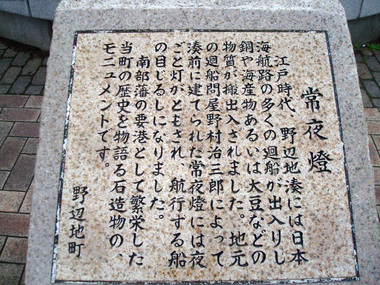 常夜燈
江戸時代、野辺地湊には日本
海航路の多くの廻船が出入りし
銅や海産物あるいは大豆などの
物質が搬出入されました。地元
の廻船問屋野村治三郎によって
湊前に建てられた常夜燈には夜
ごと灯がともされ、航行する船
の目じるしになりました。
南部藩の要港として繁栄した
当町の歴史を物語る石造物の、
モニュメントです。
野辺地町